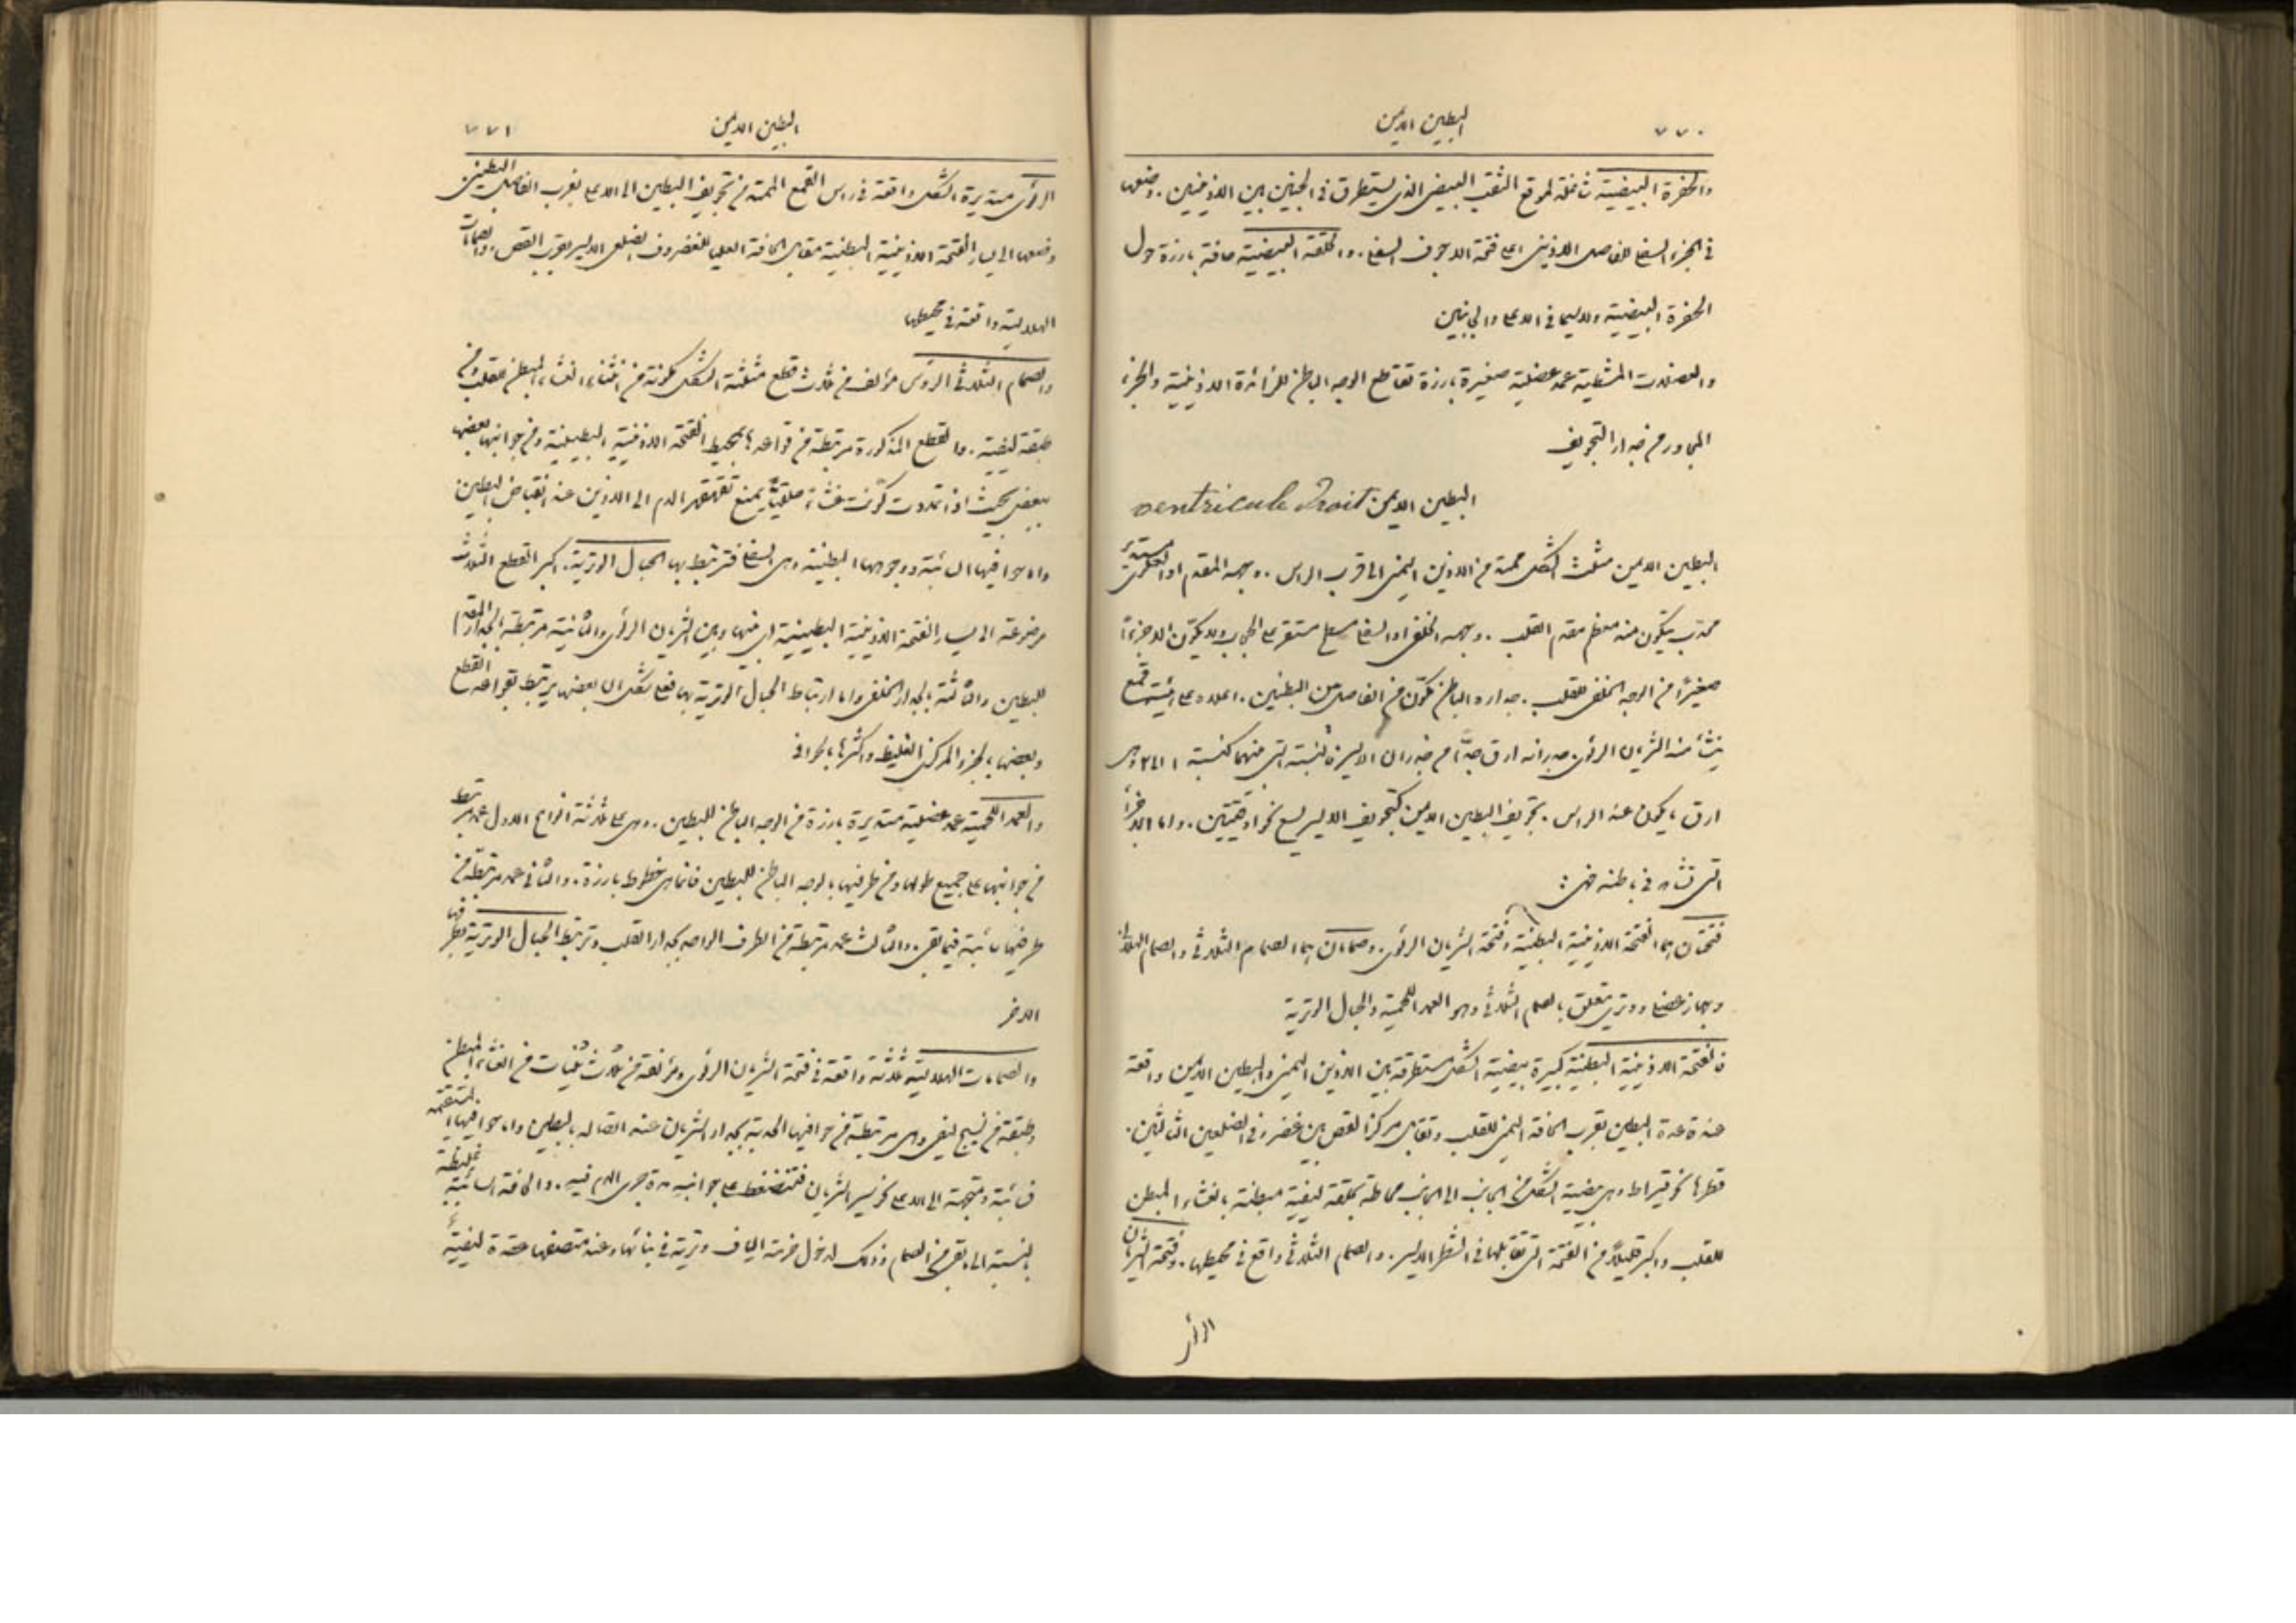 ٧٧٠
البطين الايمن
والحفرة البيضية شاغلة لموقع الثقب البيضي الذي يستطرق في الجنين بين الاذينين . وضعها
في الجزء السفلي للفاصل الاذيني اعلى فتحة الاجوف السفلي . والحلقة البيضية حافة بارزة حول
الحفرة البيضية ولاسيما في الاعلى والجانبين
والعضلات المشطية عمد عضلية صغيرة بارزة تقاطع الوجه الباطن للزائدة الاذينية والجزء
المجاور من جدار التجويف
البطين الايمن ventricule Droit
البطين الايمن مثلث الشكل ممتد من الاذين اليمنى الى قرب الراس . وجهه المقدم او العلوي مستدير
محدب يتكون منه معظم مقدم القلب . وجهه الخلفي او السفلي مسطح مستقر على الحجاب ولا يكوّن الا جزءاً
صغيراً من الوجه الخلفي للقلب . جداره الباطن مكوّن من الفاصل بين البطينين . اعلاه على هيئة قمع
ينشأ منه الشريان الرئوي . جدرانه ارق جدّاً من جدران الايسر والنسبة التي منهما كنسبة ١ الى ٣ وهي
ارق ما يكون عند الراس . تجويف البطين الايمن كتجويف الايسر يسع نحو اوقيتين . واما الاجزاء
التي تشاهد في باطنه فهي :
فتحتان هما الفتحة الاذينية البطينية وفتحة الشريان الرئوي . وصمامان هما الصمام الثلاثي والصمام الهلالي
وجهاز عضلي ووتري متعلق بالصمام الثلاثي وهو العمد اللحمية والحبال الوترية
فالفتحة الاذينية البطينية كبيرة بيضية الشكل مستطرقة بين الاذين اليمنى والبطين الايمن واقعة
عند قاعدة البطين بقرب الحافة اليمنى للقلب وتقابل مركز القص بين غضروفي الضلعين الثالثين .
قطرها نحو قيراط وهي بيضية الشكل من الجانب الى الجانب محاطة بحلقة ليفية مبطنة بالغشاء المبطن
للقلب واكبر قليلاً من الفتحة التي تقابلها في الشطر الايسر . والصمام الثلاثي واقع في محيطها . وفتحة الشريان
البطين الايمن
٧٧١
الرئوي مستديرة الشكل واقعة في راس القمع الممتد من تجويف البطين الى الاعلى بقرب الفاصل البطيني
وضعها الى يسار الفتحة الاذينية البطينية مقابل الحافة العليا للغضروف الضلعي الايسر بقرب القص والصمامات
الهلالية واقعة في محيطها
والصمام الثلاثي الرؤوس مؤلف من ثلاث قطع مثلثة الشكل مكونة من انثناء الغشاء المبطن للقلب ومن
طبقة ليفية . والقطع المذكورة مرتبطة من قواعدها بمحيط الفتحة الاذينية البطينية ومن جوانبها بعضها
ببعض بحيث اذا تمددت كوّنت غشاءً حلقياً يمنع تقهقر الدم الى الاذين عند انقباض البطين
واما حوافيها السائبة ووجوهها البطينية وهي السفلى فترتبط بها الحبال الوترية . اكبر القطع الثلاث
موضوعة الى يسار الفتحة الاذينية البطينية اي بينها وبين الشريان الرئوي والثانية مرتبطة بالجدار المقدم
للبطين والثالثة بالجدار الخلفي واما ارتباط الحبال الوترية بها فعلى شكل ان بعضها يرتبط بقواعد القطع
وبعضها بالجزء المركزي الغليظ واكثرها بالحوافي
والعمد اللحمية عمد عضلية مستديرة بارزة من الوجه الباطن للبطين . وهي على ثلاثة انواع الاول عمد مرتبط
من جوانبها على جميع طولها ومن طرفيها بالوجه الباطن للبطين فانما هي خطوط بارزة . والثاني عمد مرتبطة من
طرفيها سائبة فيما بقي . والثالث عمد مرتبطة من الطرف الواحد بجدار القلب وترتبط الحبال الوترية بطرفها
الاخر
والصمامات الهلالية ثلاثة واقعة في فتحة الشريان الرئوي ومؤلفة من ثلاث ثنيات من الغشاء المبطن
وطبقة من نسيج ليفي وهي مرتبطة من حوافيها المحدبة بجدار الشريان عند اتصاله بالبطين واما حوافيها المستقيمة
فسائبة ومتجهة الى الاعلى نحو سير الشريان فتنضغط على جوانبه مدة جري الدم فيه . والحافة السائبة غليظة
بالنسبة الى ما بقي من الصمام وذلك لدخول حزمة الياف وترية في بنائها وعند منتصفها عقدة ليفية